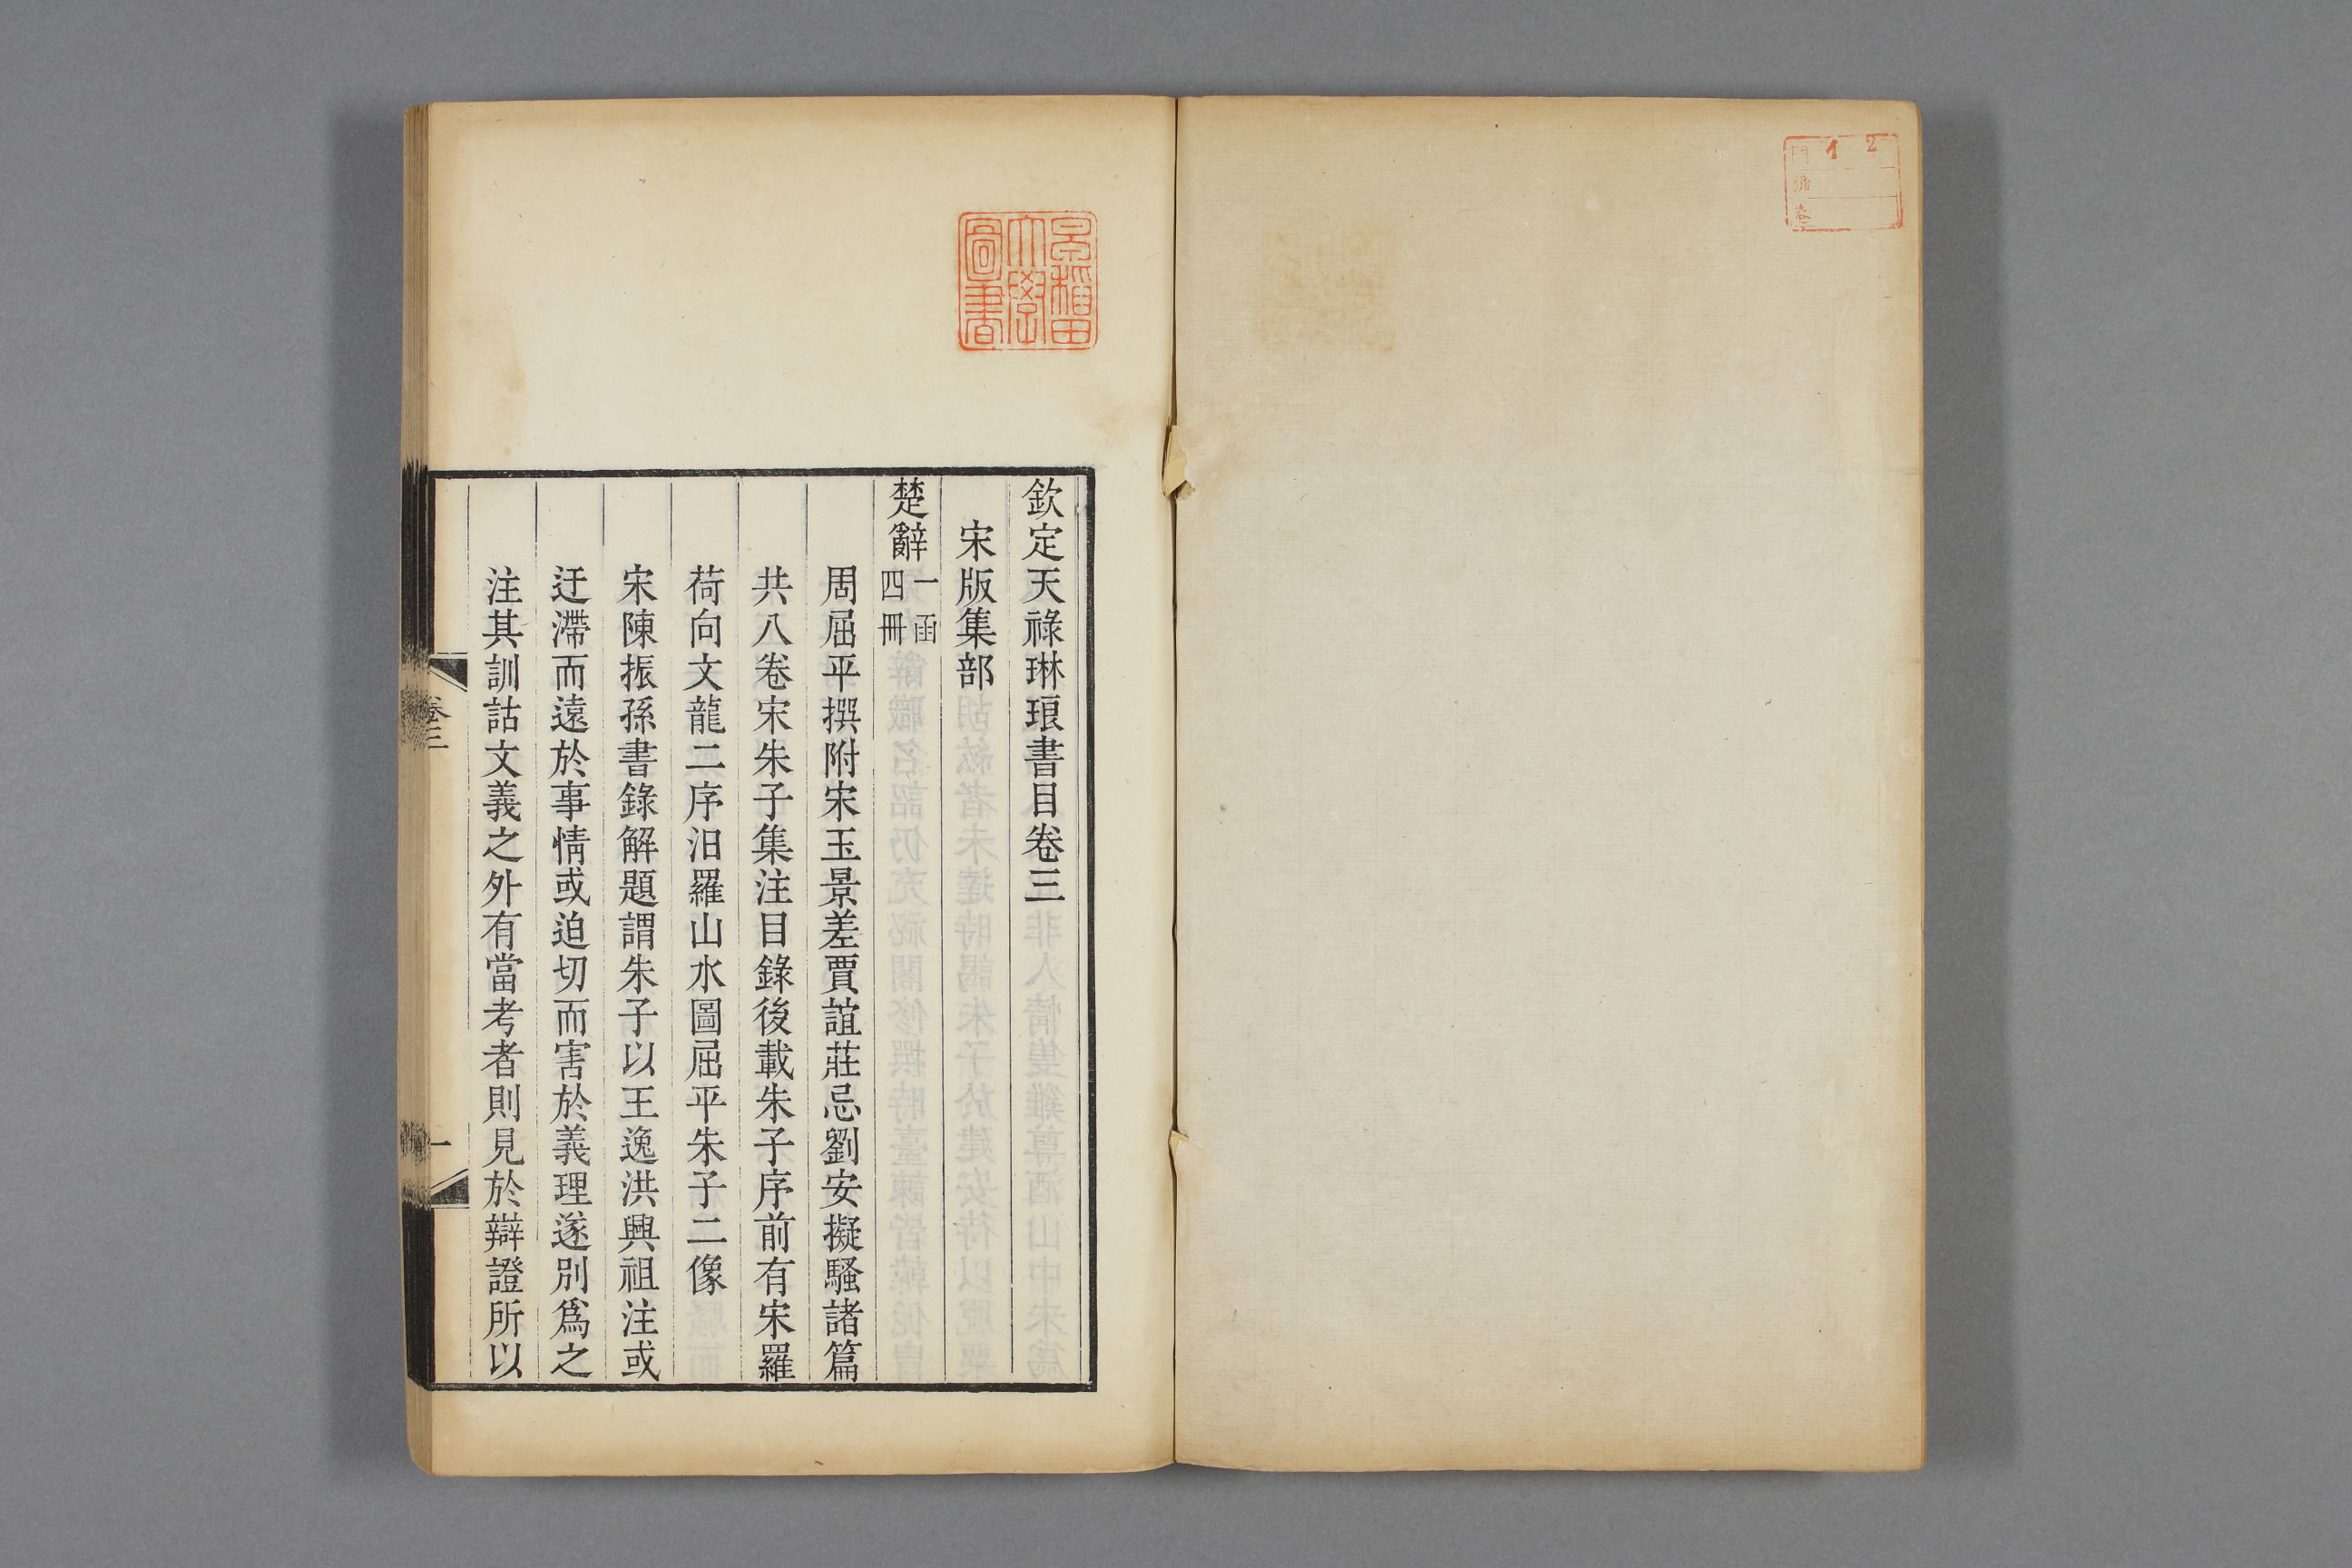 欽定天祿琳琅書目卷三
宋版集部
楚辭 一函四冊
周屈平撰附宋玉景差賈誼莊忌劉安擬騷諸篇
共八卷宋朱子集注目錄後載朱子序前有宋羅
荷向文龍二序汨羅山水圖屈平朱子二像
宋陳振孫書錄解題謂朱子以王逸洪興祖注或
迂滯而遠於事情或迫切而害於義理遂別爲之
注其訓詁文義之外有當考者則見於辯證所以
卷三
一
早稻田大學圖書
門 1 2
號
卷